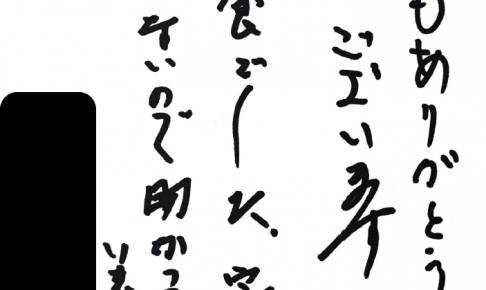 もありがとう
ございます
食でした、
ないので助かっ
いま